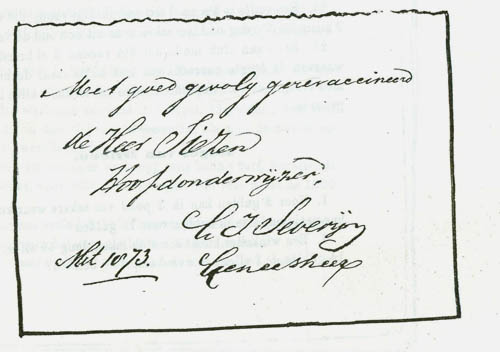 Met goed gevolg gerevaccineerd
de Heer Sieken
Hoofdonderwijzer,
C J Severijn
Mei 1873. Geneesheer